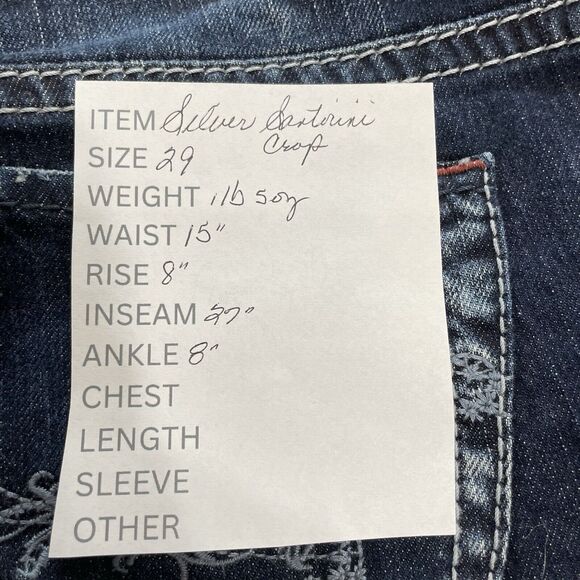 ITEM Silver Santorini
Crop
SIZE 29
WEIGHT 1lb 5oz
WAIST 15"
RISE 8"
INSEAM 27"
ANKLE 8"
CHEST
LENGTH
SLEEVE
OTHER